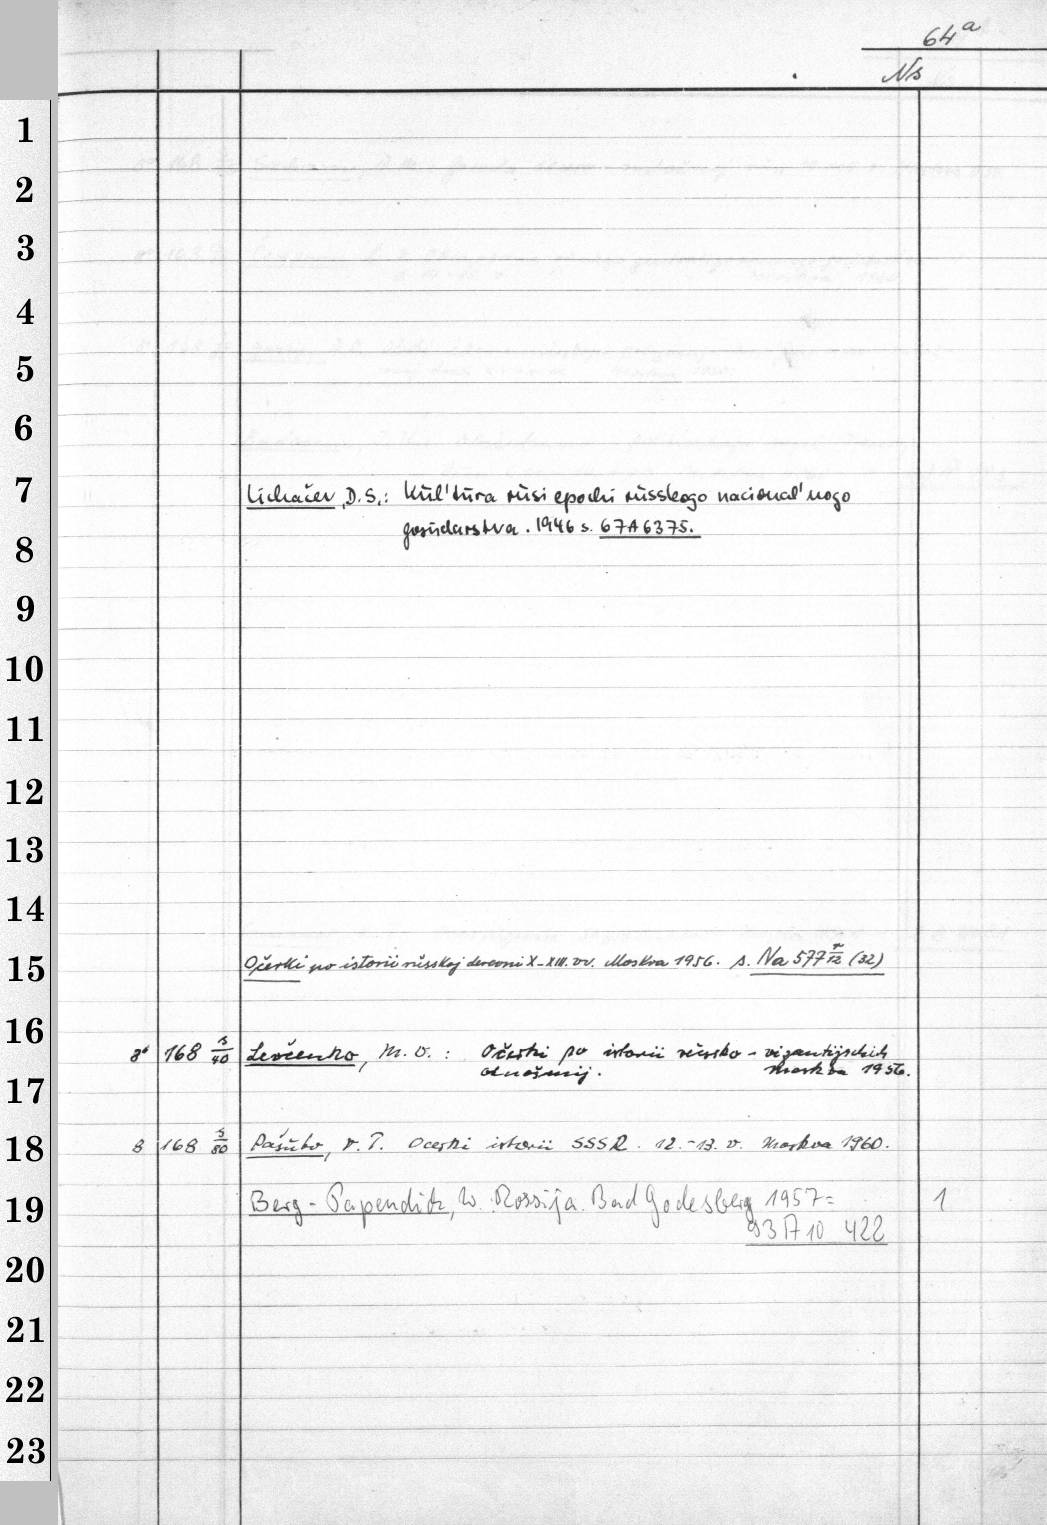 64a
Ns
1
2
3
4
5
6
7
Lichačev, D.S.: Kul'tura rusi epochi russkogo nacional'nogo
gosudarstva. 1946 s. 67A6375.
8
9
10
11
12
13
14
15
Očerki po istorii russkoj derevni X-XIII. vv. Moskva 1956. s. Na 577 r/12 (32)
16
8° 168 s/40 Levčenko, M.V.: Očerki po istorii russko-vizantijskich
otnošenij. Moskva 1956.
17
18
8 168 s/80 Pašuto, V.T. Ocerki istorii SSSR. 12.-13. v. Moskva 1960.
19
Berg-Papendick, W. Rossija. Bad Godesberg 1957= 1
93 A 10 422
20
21
22
23